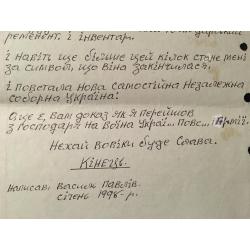 ремонент. і інвентар.
і навіть ще більше цей кілок стане мені
за символ, що віна закінчилася.
і повстала нова самостійна незалежна
соборна Україна!
Оце є, Вам доказ як я перейшов
з господаря на воїна Украї... Повс... Армії.
Нехай вовіки буде Слава.
Кінець.
Написав: Василь Павлів.
січень 1998-р.